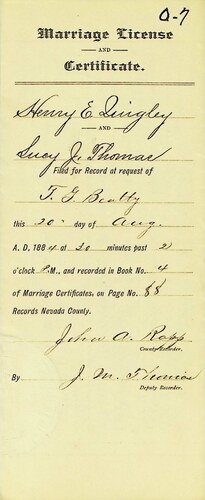 O-7
Marriage License
AND
Certificate.
Henry E Dingley
AND
Lucy J. Thomas
Filed for Record at request of
T. G. Beatty
this 20" day of Aug.
A. D, 1884 at 30 minutes past 2
o'clock P.M., and recorded in Book No. 4
of Marriage Certificates, on Page No. 88
Records Nevada County.
John A. Rapp
County Recorder.
By J. M. Thomas
Deputy Recorder.